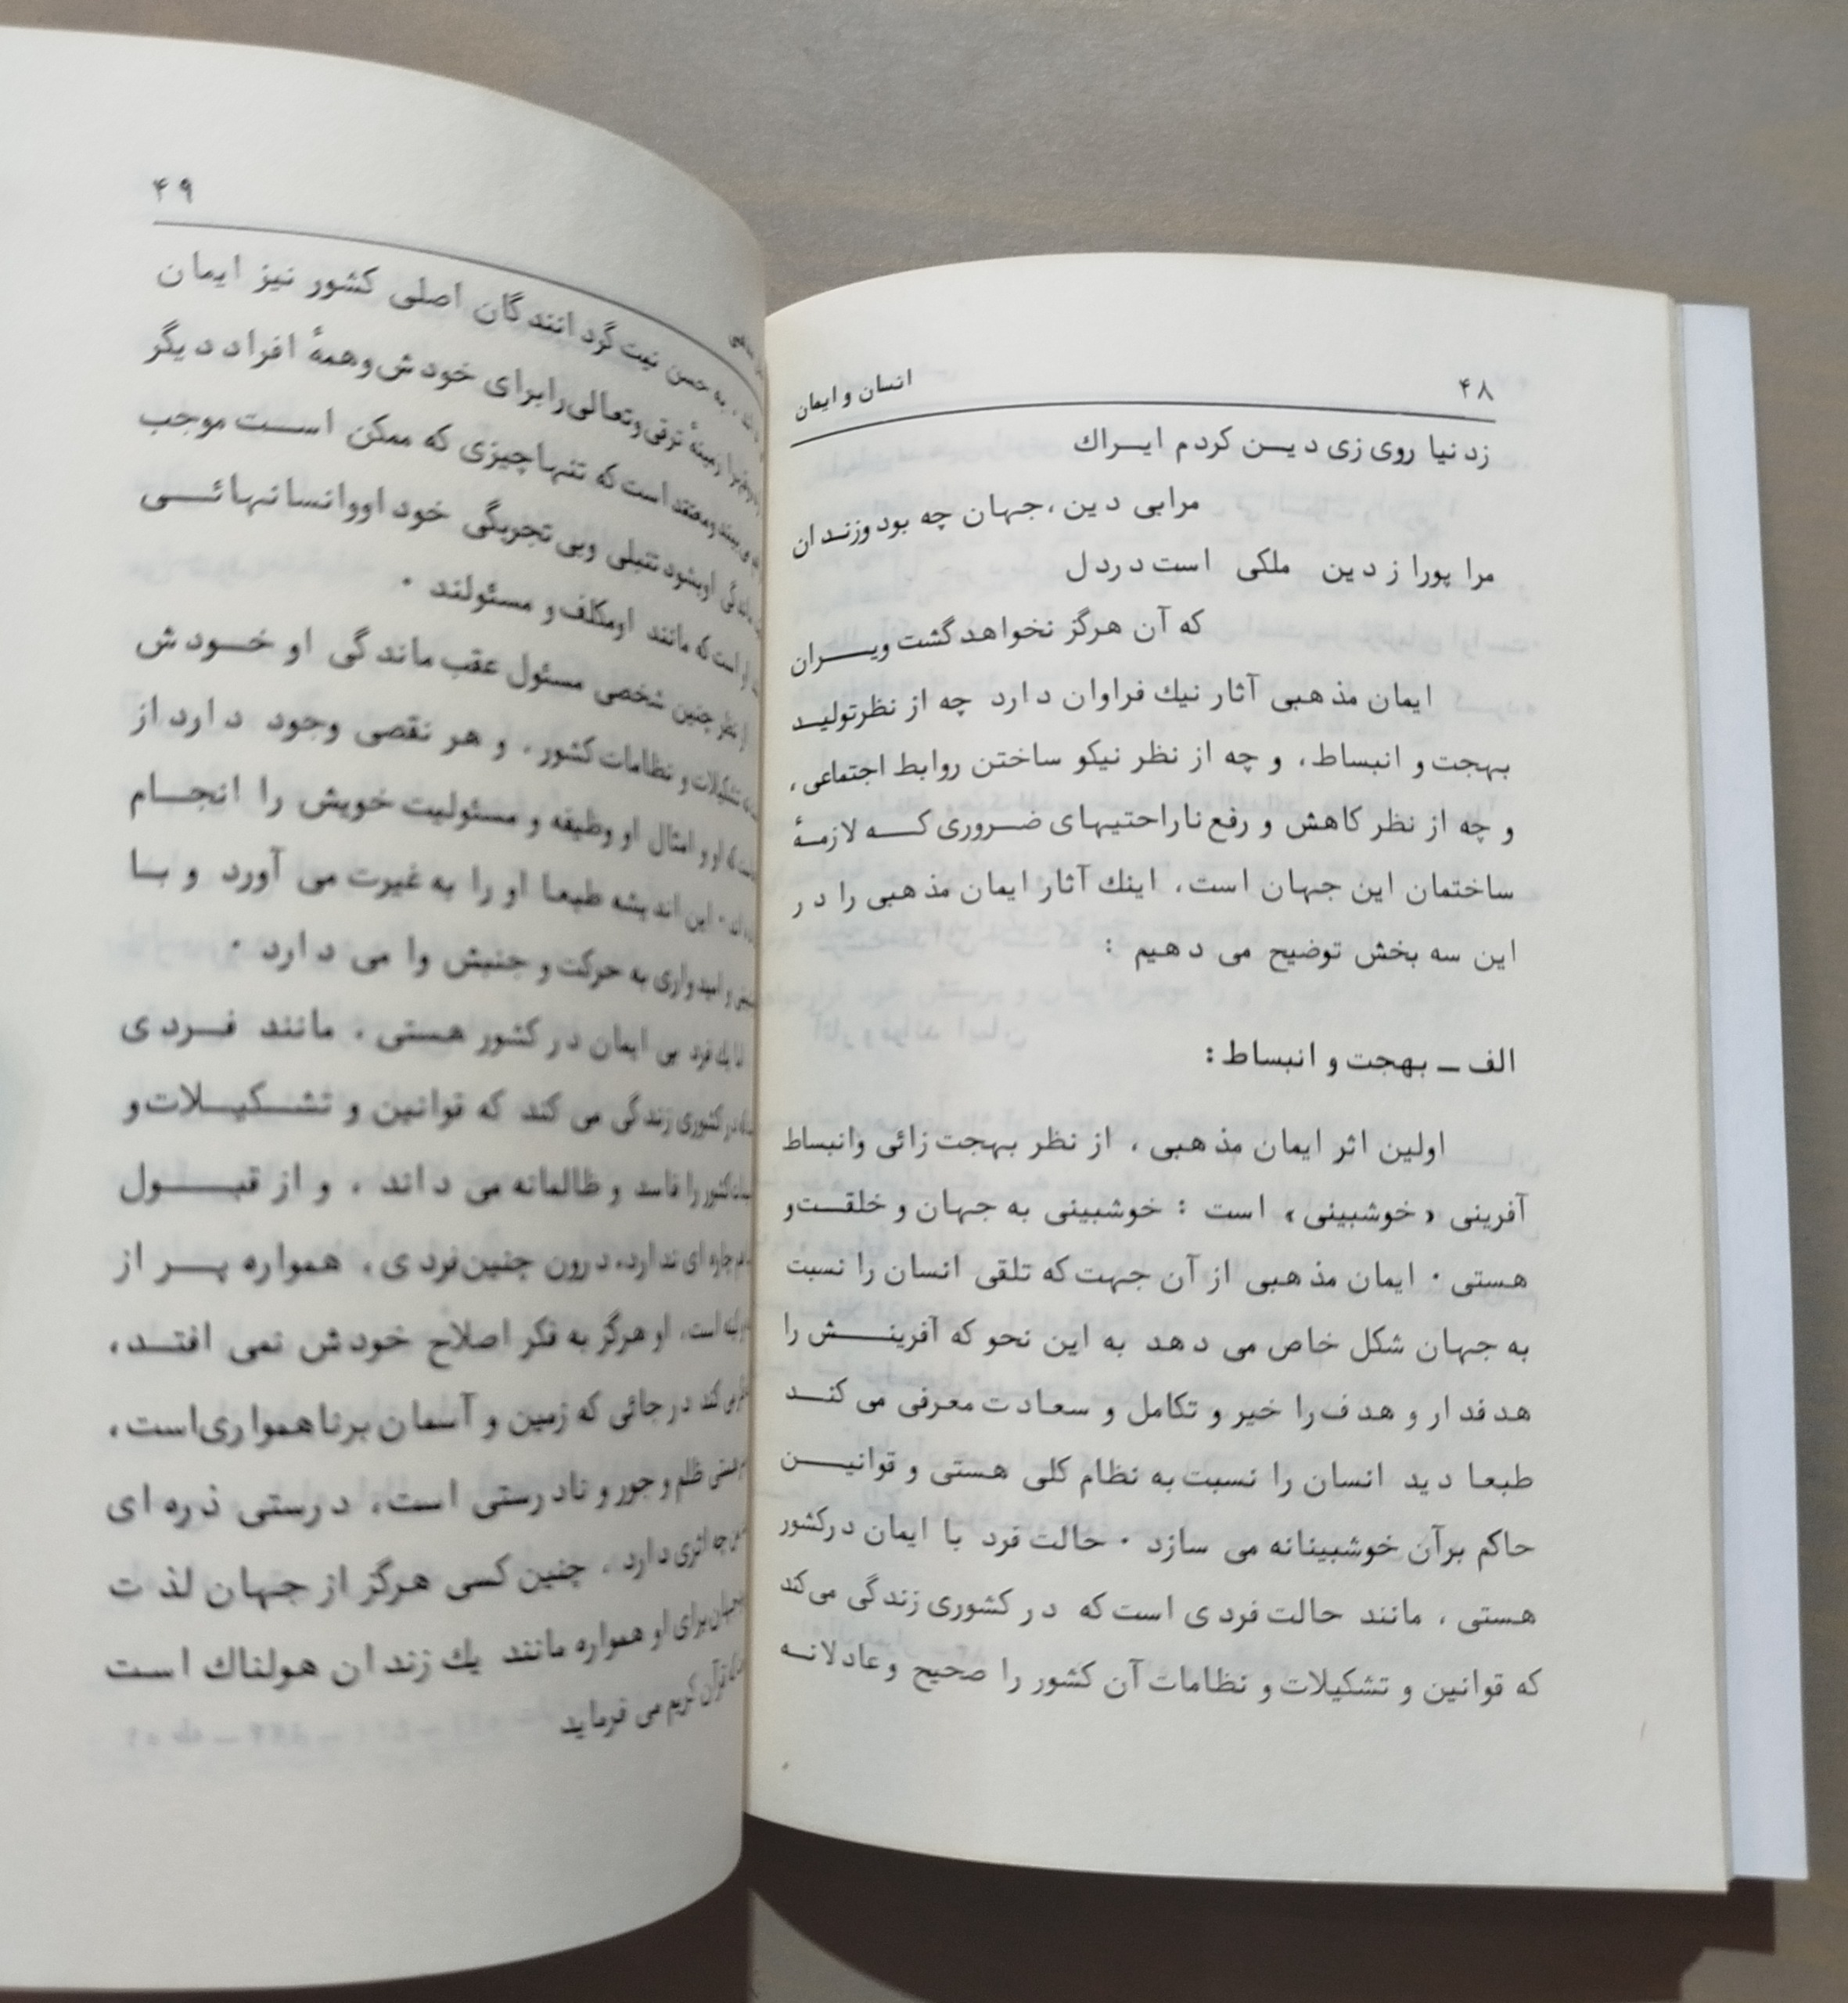 ۴۸
انسان و ایمان
زدنیا روی زی دیــن کردم ایـراك
مرابی دین ،جهان چه بود وزندان
مرا پورا ز دین ملکی است در دل
که آن هرگز نخواهد گشت ویـــران
ایمان مذهبی آثار نیك فراوان دارد چه از نظر تولیـد
بهجت و انبساط، و چه از نظر نیکو ساختن روابط اجتماعی،
و چه از نظر کاهش و رفع ناراحتیهای ضــروری کــه لازمـهٔ
ساختمان این جهان است، اینك آثار ایمان مذهبی را در
این سه بخش توضیح می دهیم :
الف ــ بهجت و انبساط:
اولین اثر ایمان مذهبی ، از نظر بهجت زائی وانبساط
آفرینی «خوشبینی» است : خوشبینی به جهان و خلقــت و
هستی . ایمان مذهبی از آن جهت که تلقی انسان را نسبت
به جهان شکل خاص می دهد به این نحو که آفرینـــش را
هدفدار و هدف را خیر و تکامل و سعادت معرفی می کنــد
طبعا دید انسان را نسبت به نظام کلی هستی و قوانیـــن
حاکم برآن خوشبینانه می سازد . حالت فرد با ایمان درکشور
هستی ، مانند حالت فردی است که در کشوری زندگی می‌کند
که قوانین و تشکیلات و نظامات آن کشور را صحیح و عادلانــه
۴۹
به حسن نیت گردانندگان اصلی کشور نیز ایمان
زمینهٔ ترقی و تعالی را برای خودش و همهٔ افراد دیگر
معتقد است که تنها چیزی که ممکن اســت موجب
او بشود تنبلی و بی تجربگی خود او و انسانهائـــی
است که مانند او مکلف و مسئولند .
از نظر چنین شخصی مسئول عقب ماندگی او خـــودش
تشکیلات و نظامات کشور ، و هر نقصی وجود دارد از
که او و امثال او وظیفه و مسئولیت خویش را انجـــام
این اندیشه طبعا او را به غیرت می آورد و بــا
و امیدواری به حرکت و جنبش وا می دارد .
فرد بی ایمان در کشور هستی ، مانند فــردی
در کشوری زندگی می کند که قوانین و تشــکیــلات و
کشور را فاسد و ظالمانه می داند ، و از قبـــول
چاره ای ندارد، درون چنین فردی ، همواره پـــر از
است ، او هرگز به فکر اصلاح خودش نمی افتــد ،
می کند در جائی که زمین و آسمان برناهمواری است ،
هستی ظلم و جور و نادرستی است، درستی ذره ای
چه اثری دارد ، چنین کسی هرگز از جهان لذت
جهان برای او همواره مانند یك زندان هولناك است
قرآن کریم می فرماید